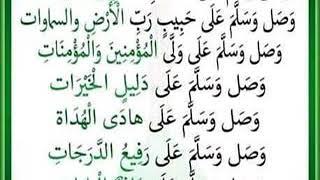 وَصَل وَسَلَّمَ عَلَى حَبِيبٍ رَبِّ الْأَرْضِ والسماوات
وَصَل وَسَلَّمَ عَلَى وَلَّى الْمُؤْمِنِينَ وَالْمُؤْمِنَاتِ
وَصَل وَسَلَّمَ عَلَى دَلِيلِ الْخَيْرَات
وَصَل وَسَلَّمَ عَلَى هادَى الْهُدَاة
وَصَل وَسَلَّمَ عَلَى رَفِيعُ الدَّرَجَاتِ